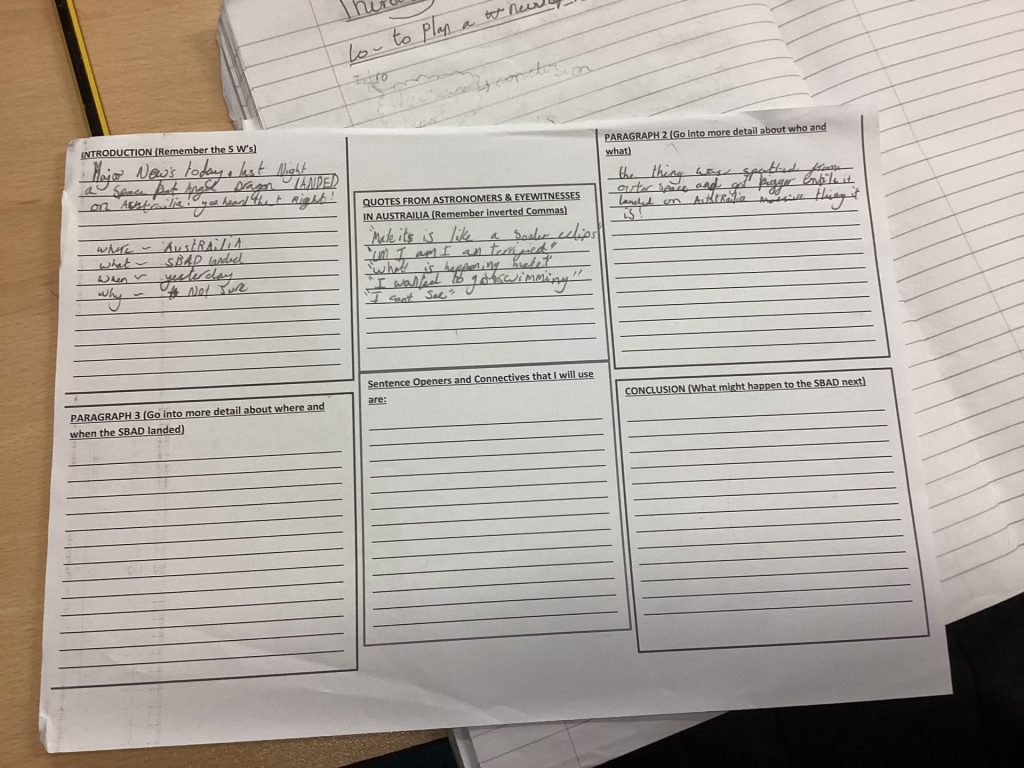 Lo - to plan a
Intro
conclusion
INTRODUCTION (Remember the 5 W's)
Major News today. last Night
a Space Bat Angle Dragon LANDED
on Austrailia! you heard that Right!
where - AUSTRAILIA
what - SBAD landed
when - yesterday
why - Not Sure
QUOTES FROM ASTRONOMERS & EYEWITNESSES
IN AUSTRAILIA (Remember inverted Commas)
is like a Soaler eclips
I am I am terrified"
"what is happening mate?"
"I wanted to go swimming"
"I cant See"
PARAGRAPH 2 (Go into more detail about who and
what)
the thing was spotted from
outer space and got bigger until it
landed on Austrailia massive thing it
is!
PARAGRAPH 3 (Go into more detail about where and
when the SBAD landed)
Sentence Openers and Connectives that I will use
are:
CONCLUSION (What might happen to the SBAD next)